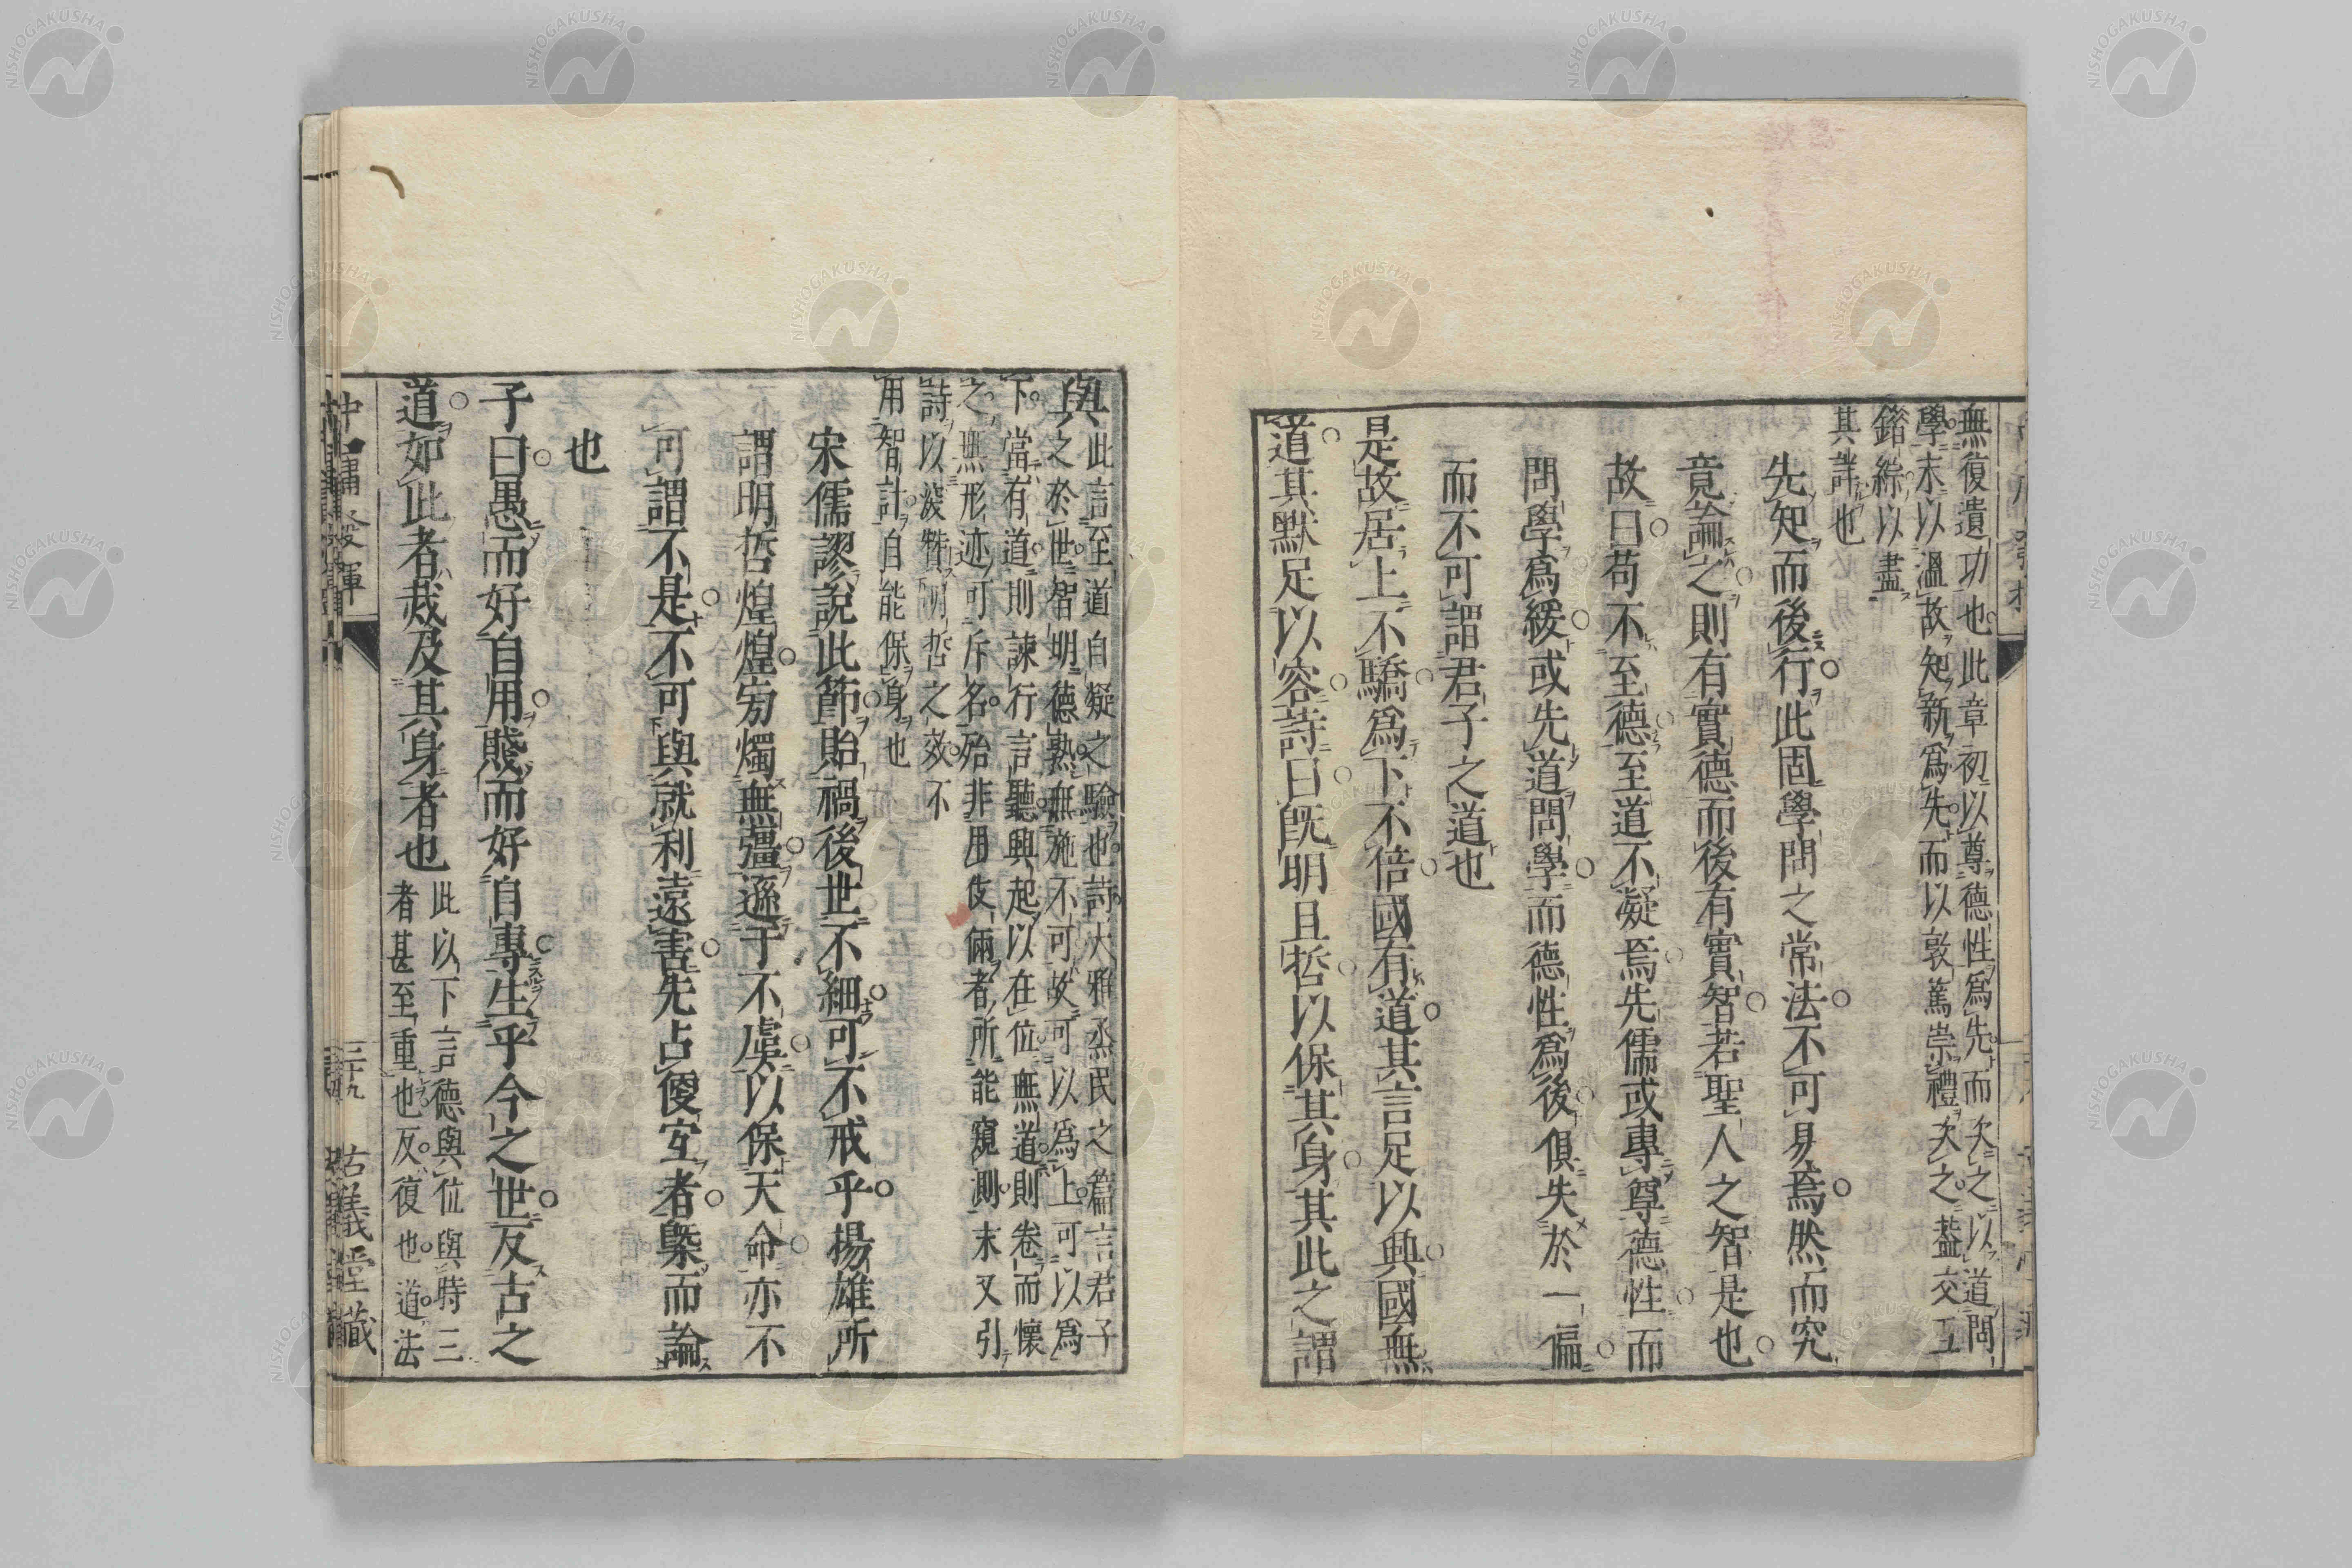 無復遺功也此章初以尊德性爲先而次之以道問
學末以溫故知新爲先而以敦篤崇禮次之葢交互
錯綜以盡
其詳也
先知而後行此固學問之常法不可易焉然而究
竟論之則有實德而後有實智若聖人之智是也
故曰苟不至德至道不凝焉先儒或專尊德性而
問學爲緩或先道問學而德性爲後俱失於一偏
而不可謂君子之道也
是故居上不驕爲下不倍國有道其言足以興國無
道其默足以容詩曰旣明且哲以保其身其此之謂
與
此言至道自凝之驗也詩大雅烝民之篇言君子
之於世智明德熟無施不可故可以爲上可以爲
下當有道則諫行言聽興起以在位無道則卷而懷
之無形迹可斥名殆非用伎倆者所能窺測末又引
詩以波贊明哲之效不
用智計自能保身也
宋儒謬說此節貽禍後世不細可不戒乎揚雄所
謂明哲煌煌旁燭無彊遜于不虞以保天命亦不
可謂不是不可與就利遠害先占便宜者槩而論
也
子曰愚而好自用賤而好自專生乎今之世反古之
道如此者烖及其身者也
此以下言德與位與時三
者甚至重也反復也道法
中庸發揮
三十九
古義堂藏
NISHOGAKUSHA